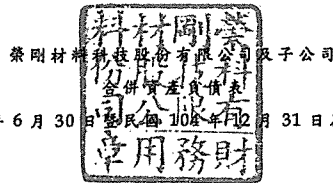 榮剛材料科技股份有限公司及子公司
合併資產負債表
6 月 30 日暨民國 104 年 12 月 31 日
榮剛材料
科技股份
有限公司
財務用章